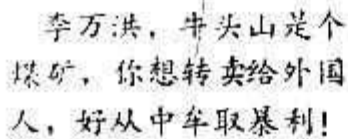 李万洪，牛头山是个
煤矿，你想转卖给外国
人，好从中牟取暴利！